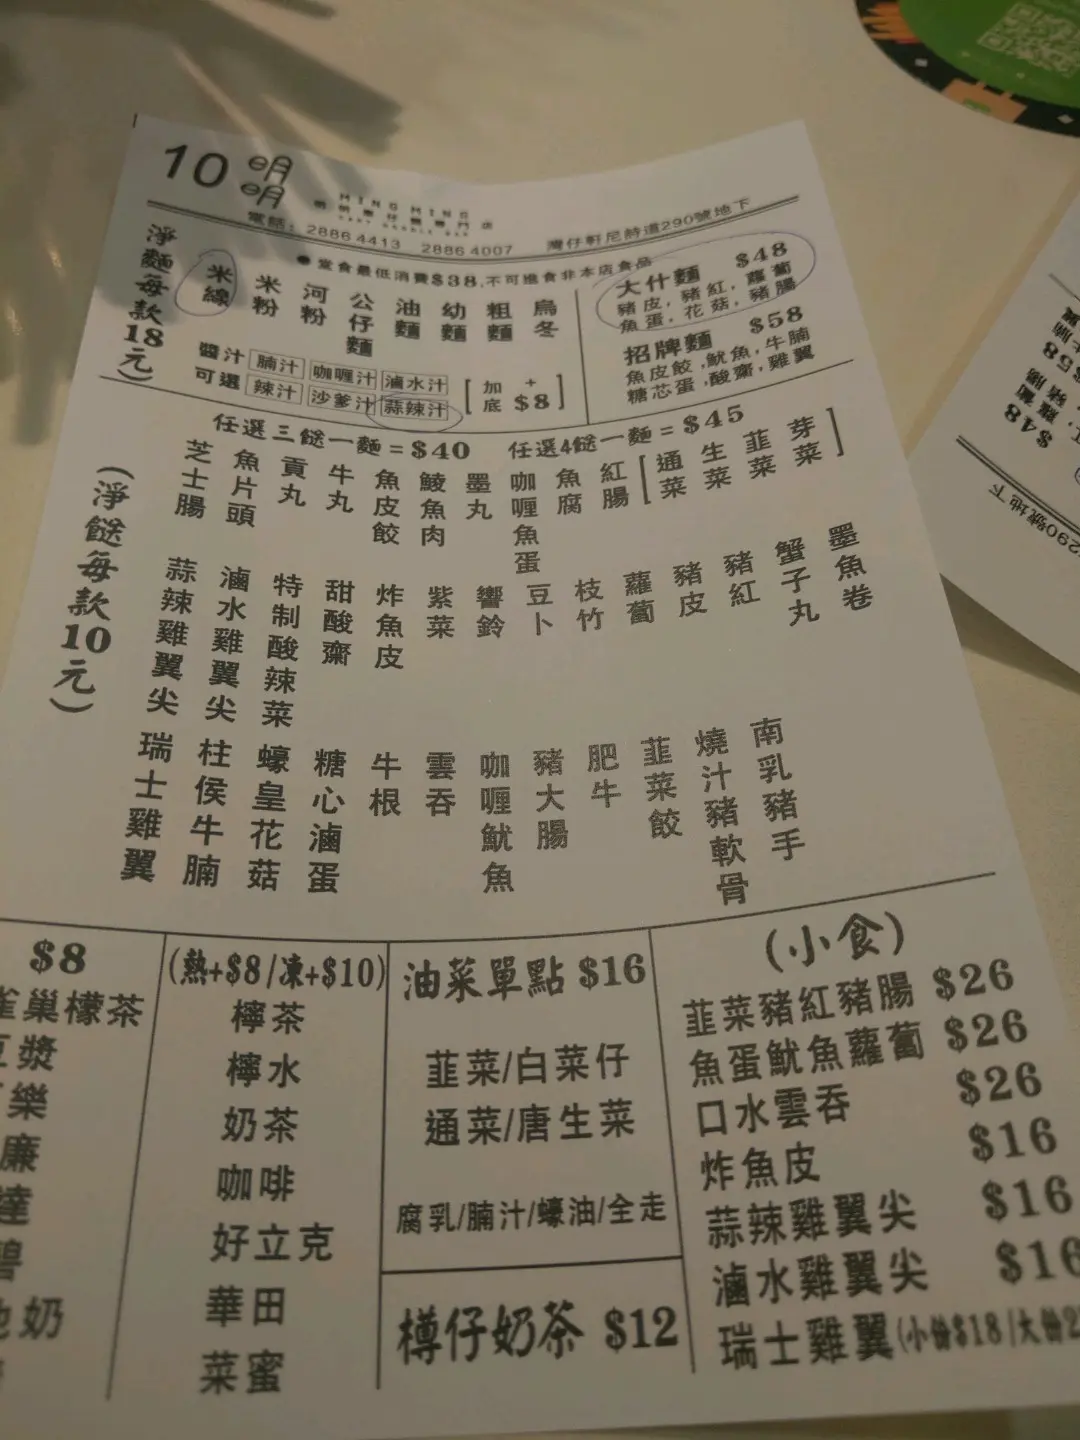 10 明明
MING MING
電話: 2886 4413 2886 4007 灣仔軒尼詩道290號地下
● 堂食最低消費$38,不可進食非本店食品
淨麵每款18元)
米線 米粉 河粉 公仔麵 油麵 幼麵 粗麵 烏冬
醬汁可選 腩汁 咖喱汁 滷水汁
辣汁 沙爹汁 蒜辣汁
[加底 +$8]
大什麵 $48
豬皮,豬紅,蘿蔔
魚蛋,花菇,豬腸
招牌麵 $58
魚皮餃,魷魚,牛腩
糖芯蛋,酸齋,雞翼
任選三餸一麵=$40 任選4餸一麵=$45
(淨餸每款10元)
芝士腸 魚片頭 貢丸 牛丸 魚皮餃 鯪魚肉 墨丸 咖喱魚蛋 魚腐 紅腸 [通菜 生菜 韮菜 芽菜]
蒜辣雞翼尖 滷水雞翼尖 特制酸辣菜 甜酸齋 炸魚皮 紫菜 響鈴 豆卜 枝竹 蘿蔔 豬皮 豬紅 蟹子丸 墨魚卷
瑞士雞翼 柱侯牛腩 蠔皇花菇 糖心滷蛋 牛根 雲吞 咖喱魷魚 豬大腸 肥牛 韮菜餃 燒汁豬軟骨 南乳豬手
$8
巢檬茶
漿
樂
廉
達
碧
奶
(熱+$8/凍+$10)
檸茶
檸水
奶茶
咖啡
好立克
華田
菜蜜
油菜單點 $16
韮菜/白菜仔
通菜/唐生菜
腐乳/腩汁/蠔油/全走
樽仔奶茶 $12
(小食)
韮菜豬紅豬腸 $26
魚蛋魷魚蘿蔔 $26
口水雲吞 $26
炸魚皮 $16
蒜辣雞翼尖 $16
滷水雞翼尖 $16
瑞士雞翼(小份$18/大份2
$48
$58
290號地下